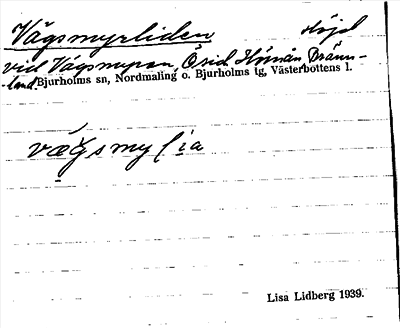 Vägsmyrliden Höjd
vid Vägsmyran, Örid Hörnån Bränn-
-land. Bjurholms sn, Nordmaling o. Bjurholms tg, Västerbottens l.
vægsmylia
Lisa Lidberg 1939.